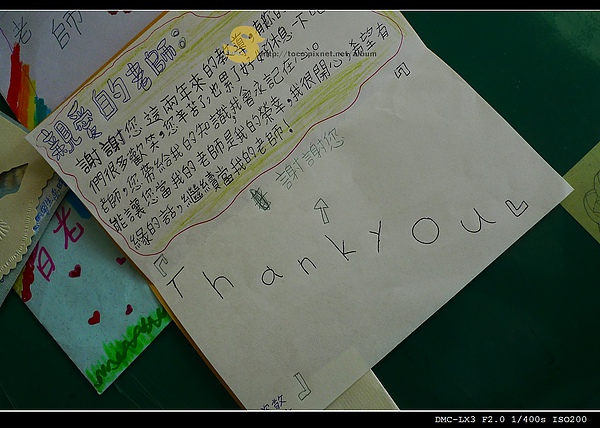 老師
親愛的老師:
謝謝您這兩年來的教導
們很多歡笑,您辛苦了,也累了好好休息,不
老師,您帶給我的知識,我會永記在心。
能讓您當我的老師是我的榮幸,我很開心,希望有
緣的話,繼續當我的老師!
謝謝您
『Thank you』
老
白
http://toco.pixnet.net/album
DMC-LX3 F2.0 1/400s ISO200